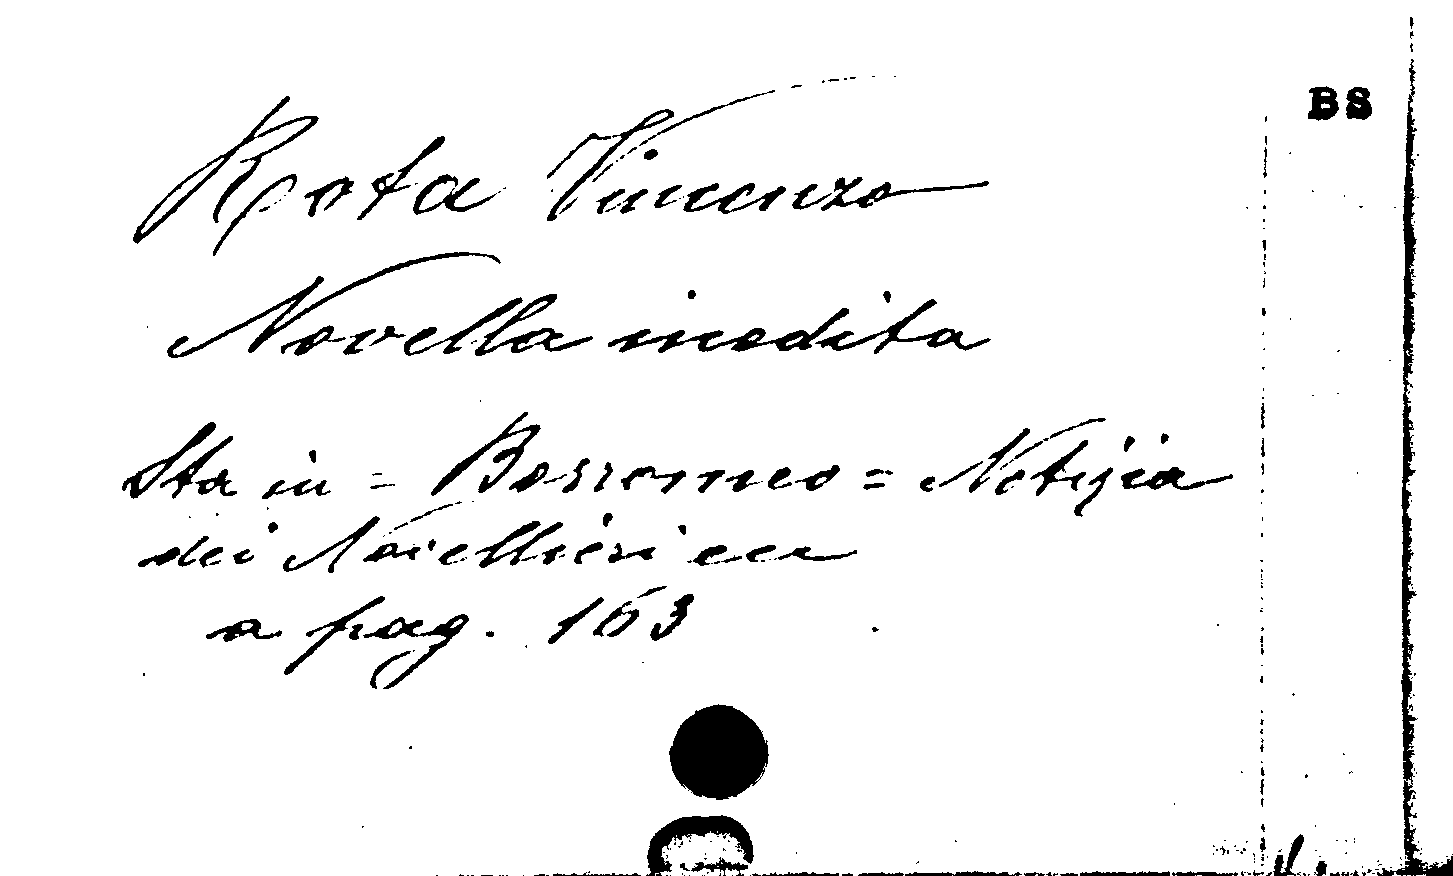 BS
Rota Vincenzo
Novella inedita
Sta in = Borromeo = Notizia
dei Novellieri ecc
a pag. 163